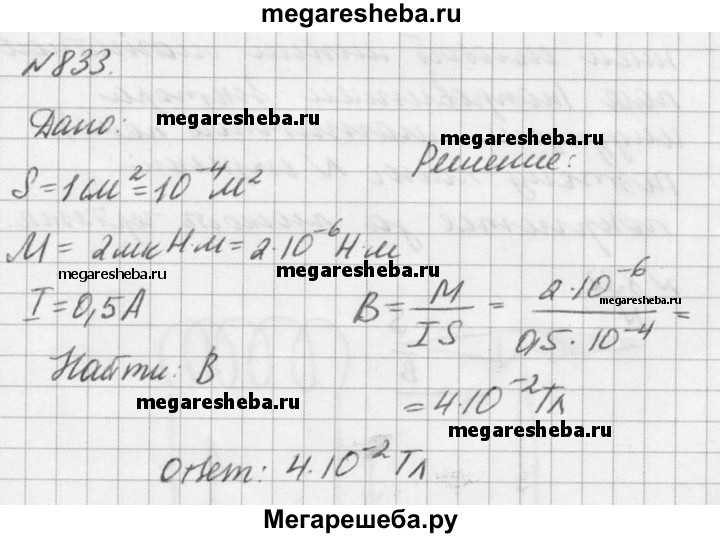 megaresheba.ru
№833.
Дано: megaresheba.ru
megaresheba.ru
Решение:
S = 1 см² = 10⁻⁴ м²
M = 2 мкН·м = 2·10⁻⁶ Н·м
megaresheba.ru megaresheba.ru
I = 0,5 А
B = M/IS = 2·10⁻⁶/0,5·10⁻⁴ =
megaresheba.ru
Найти: B
megaresheba.ru
= 4·10⁻² Тл
megaresheba.ru
Ответ: 4·10⁻² Тл
Мегарешеба.ру